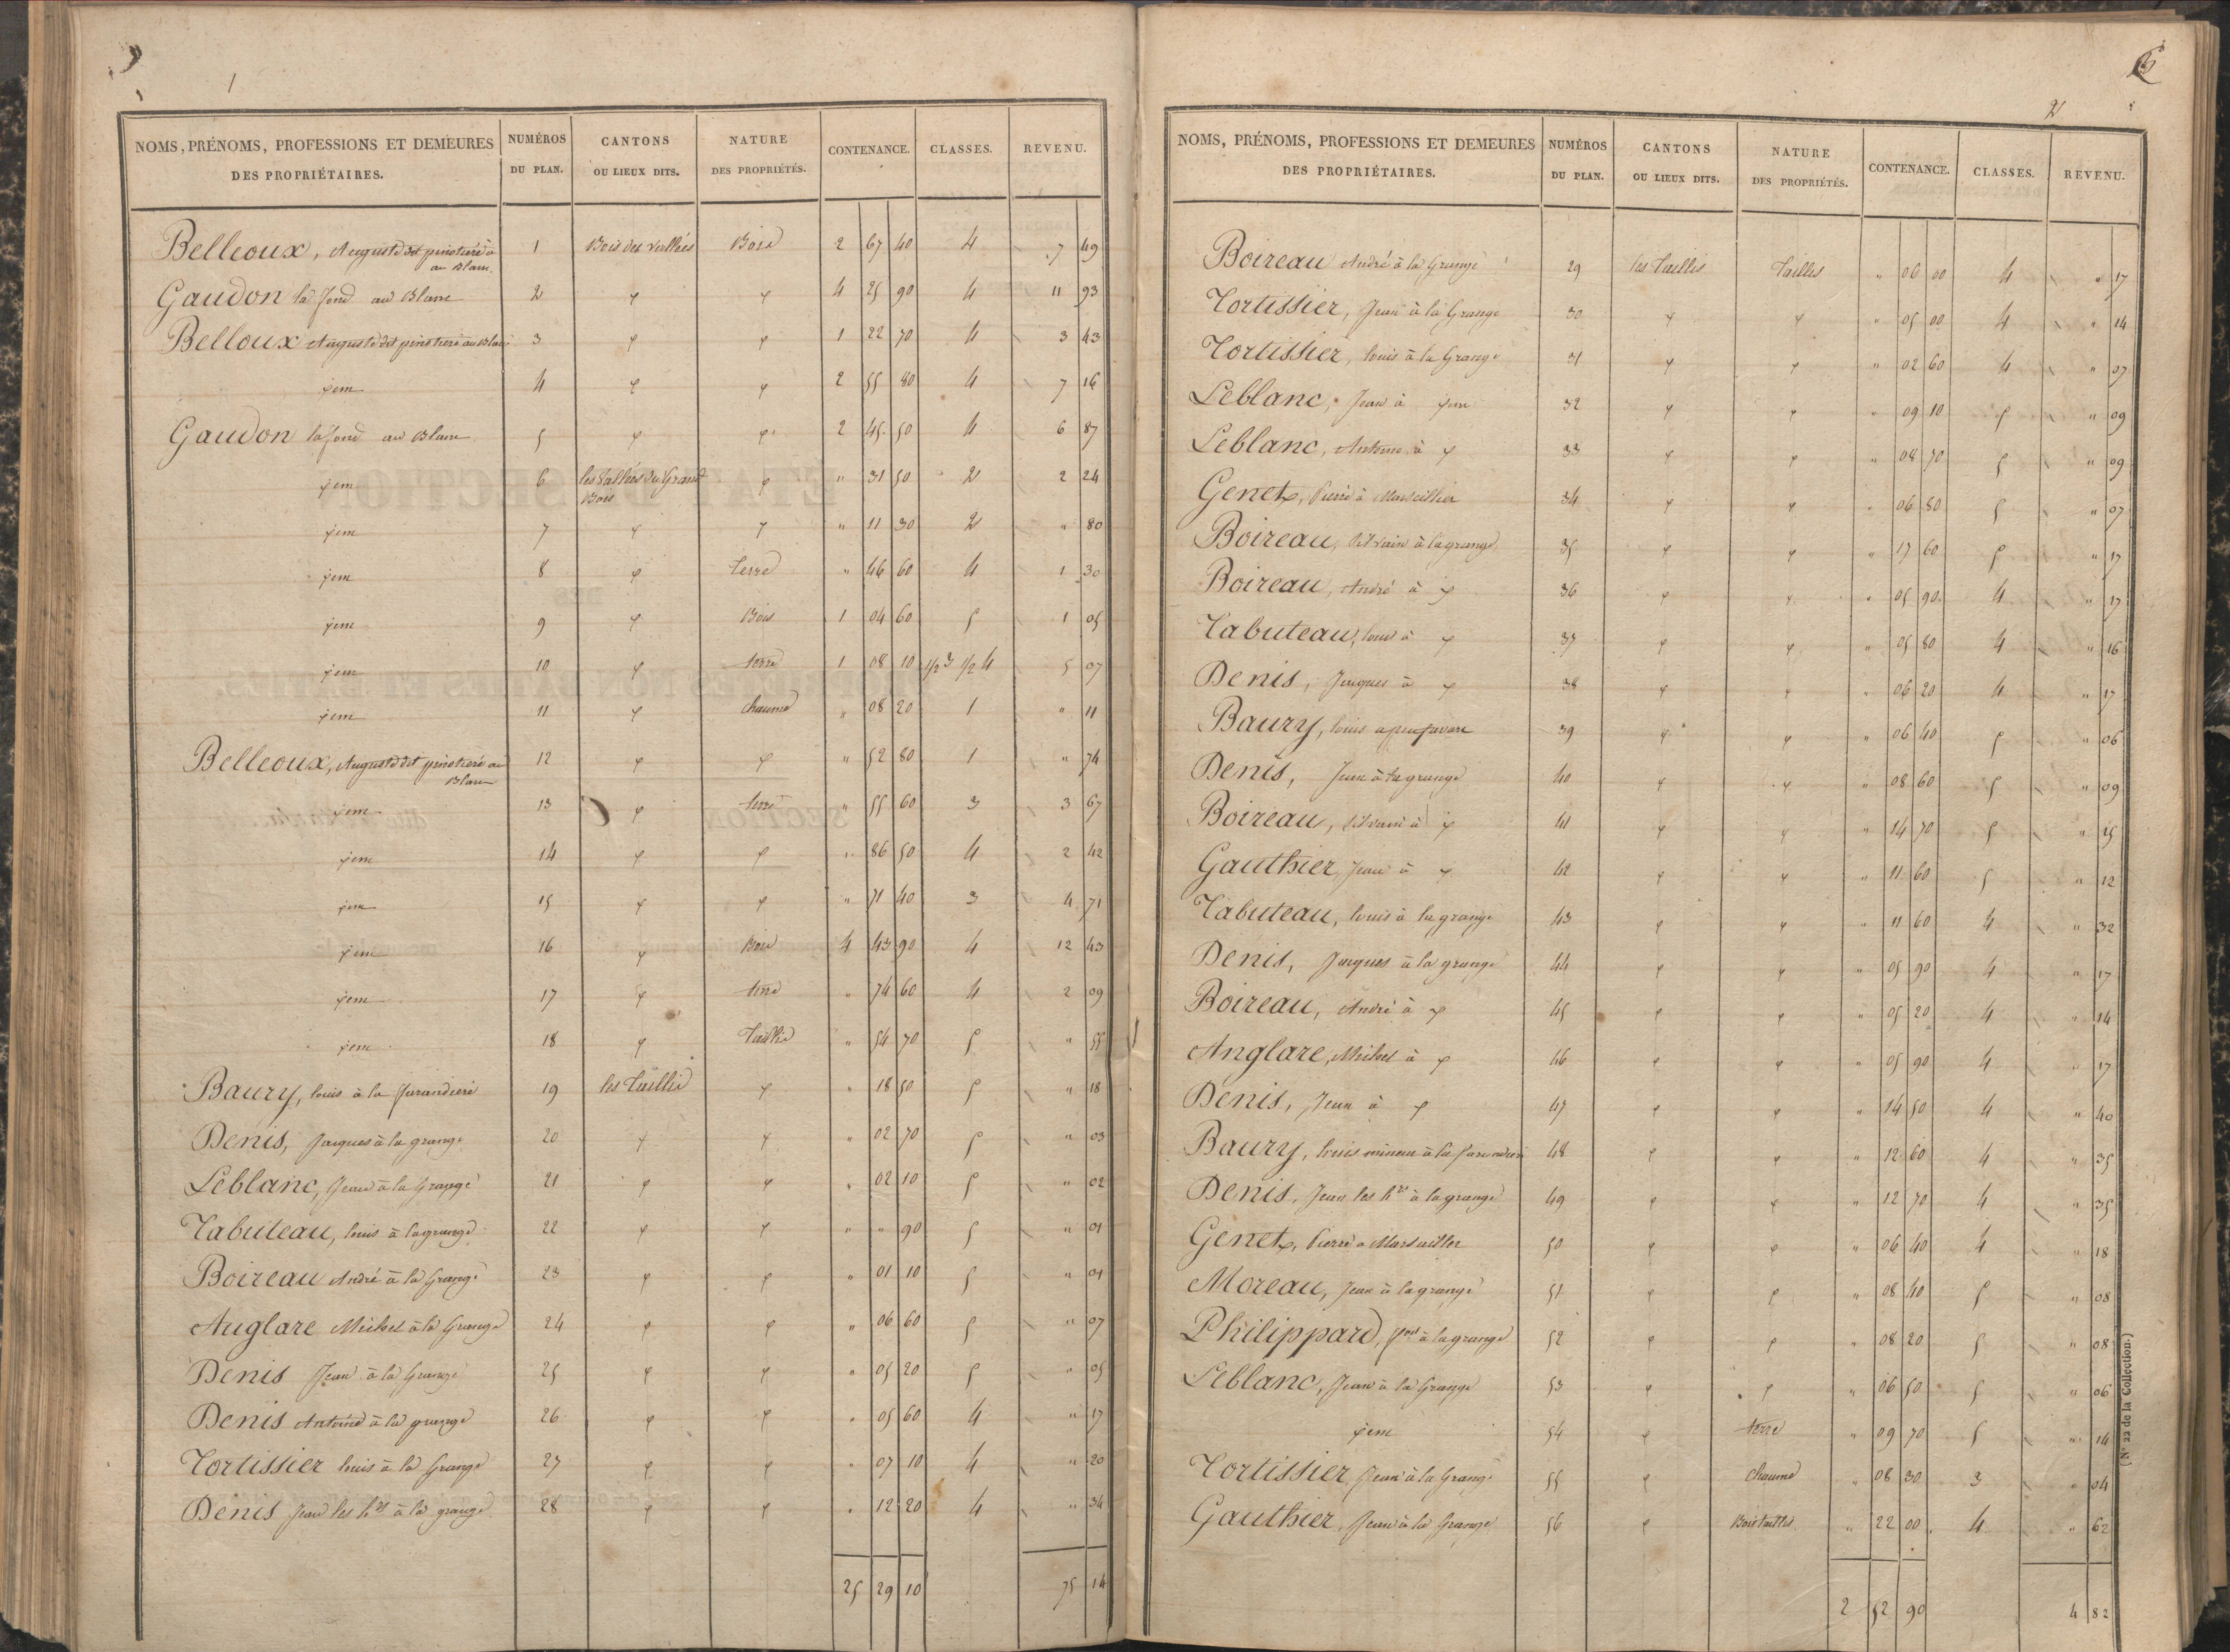 1
NOMS, PRÉNOMS, PROFESSIONS ET DEMEURES DES PROPRIÉTAIRES. NUMÉROS DU PLAN. CANTONS OU LIEUX DITS. NATURE DES PROPRIÉTÉS. CONTENANCE. CLASSES. REVENU.
Belleoux, Auguste dit au Blanc 1 Bois des vallées Bois 2 67 40 4 7 49
Gaudon la fond au Blanc 2 " " 4 25 90 4 11 93
Belloux Auguste dit au Blanc 3 " " 1 22 70 4 3 43
jem 4 " " 2 55 80 4 7 16
Gaudon lafond au Blanc 5 " " 2 45 50 4 6 87
jem 6 les vallées du Grand Bois " " 31 50 2 2 24
jem 7 " " " 11 30 2 " 80
jem 8 " terre " 46 60 4 1 30
jem 9 " Bois 1 04 60 5 1 05
jem 10 " terre 1 08 10 1/2 3 1/2 4 5 07
jem 11 " chaume " 08 20 1 " 11
Belleoux, Auguste dit au Blanc 12 " " " 52 80 1 " 74
jem 13 " terre " 55 60 3 3 67
jem 14 " " " 86 50 4 2 42
jem 15 " " " 71 40 3 4 71
jem 16 " Bois 4 43 90 4 12 43
jem 17 " terre " 74 60 4 2 09
jem 18 " Taillis " 54 70 5 " 55
Baury, louis à la 19 les Taillis " " 18 50 5 " 18
Denis, Jacques à la grange 20 " " " 02 70 5 " 03
Leblanc, Jean à la Grange 21 " " " 02 10 5 " 02
Tabuteau, louis à la grange 22 " " " " 90 5 " 01
Boireau André à la Grange 23 " " " 01 10 5 " 01
Anglare Michel à la Grange 24 " " " 06 60 5 " 07
Denis Jean à la Grange 25 " " " 05 20 5 " 05
Denis Antoine à la grange 26 " " " 05 60 4 " 17
Tortissier louis à la Grange 27 " " " 07 10 4 " 20
Denis Jean les hers à la grange 28 " " " 12 20 4 " 34
25 29 10 75 14
2
NOMS, PRÉNOMS, PROFESSIONS ET DEMEURES DES PROPRIÉTAIRES. NUMÉROS DU PLAN. CANTONS OU LIEUX DITS. NATURE DES PROPRIÉTÉS. CONTENANCE. CLASSES. REVENU.
Boireau André à la Grange 29 les Taillis Taillis " 06 00 4 " 17
Tortissier, Jean à la Grange 30 " " " 05 00 4 " 14
Tortissier, louis à la Grange 31 " " " 02 60 4 " 07
Leblanc, Jean à jem 32 " " " 09 10 5 " 09
Leblanc, Antoine à " 33 " " " 08 70 5 " 09
Genet, Pierre à 34 " " " 06 80 5 " 07
Boireau, Silvain à la grange 35 " " " 17 60 5 " 17
Boireau, André à " 36 " " " 05 90 4 " 17
Tabuteau, louis à " 37 " " " 05 80 4 " 16
Denis, Jacques à " 38 " " " 06 20 4 " 17
Baury, louis 39 " " " 06 40 5 " 06
Denis, Jean à la grange 40 " " " 08 60 5 " 09
Boireau, Silvain à " 41 " " " 14 70 5 " 25
Gauthier, Jean à " 42 " " " 11 60 5 " 12
Tabuteau, louis à la grange 43 " " " 11 60 4 " 32
Denis, Jacques à la grange 44 " " " 05 90 4 " 17
Boireau, André à " 45 " " " 05 20 4 " 14
Anglare, Michel à " 46 " " " 05 90 4 " 17
Denis, Jean à " 47 " " " 14 50 4 " 40
Baury, louis mineur à la 48 " " " 12 60 4 " 35
Denis, Jean les hers à la grange 49 " " " 12 70 4 " 35
Genet, Pierre à 50 " " " 06 40 4 " 18
Moreau, Jean à la grange 51 " " " 08 40 5 " 08
Philippard, à la grange 52 " " " 08 20 5 " 08
Leblanc, Jean à la Grange 53 " " " 06 50 5 " 06
jem 54 " terre " 09 70 5 " 14
Tortissier, Jean à la Grange 55 " chaume " 08 30 3 " 04
Gauthier, Jean à la Grange 56 " Bois taillis " 22 00 4 " 62
2 52 90 4 82
(N° 22 de la Collection.)